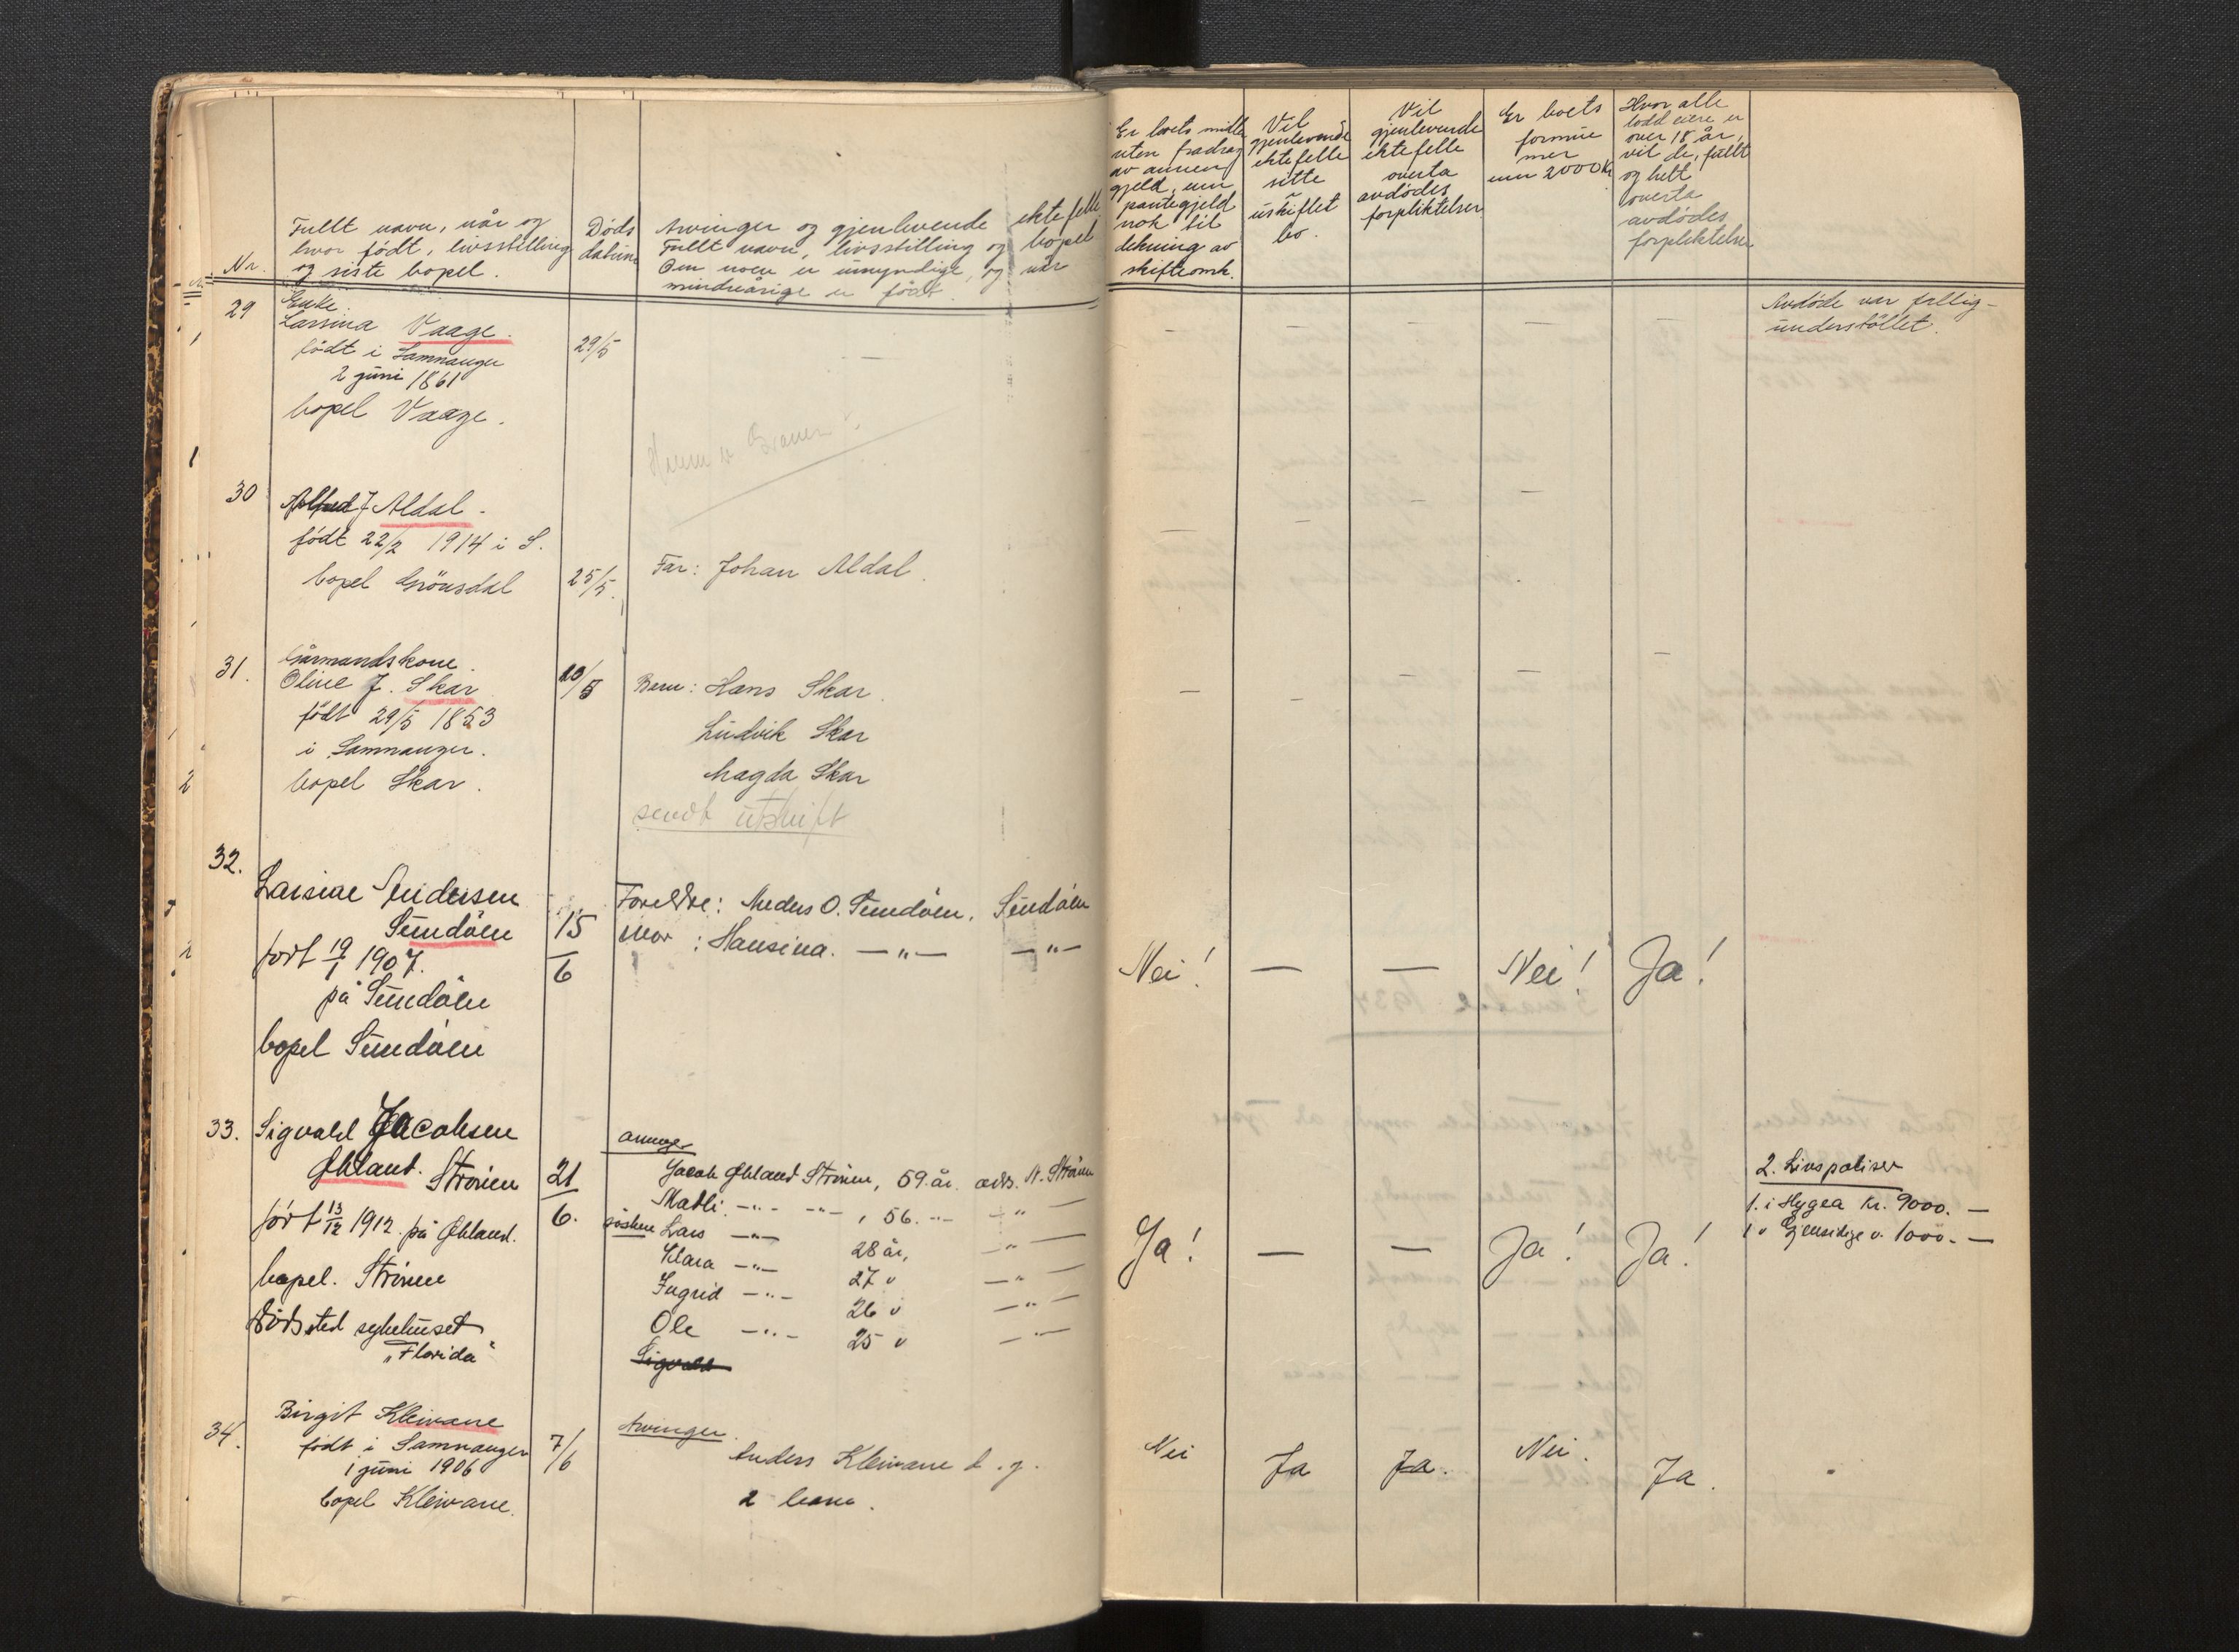 Nr.
Fullt navn, når og
hvor født, livsstilling
og siste bopel.
Døds
datum
Arvinger og gjenlevende ektefelle
Fullt navn, livsstilling og bopel
Om noen er umyndige, og når
mindreårige er født.
Er boets midler
uten fradrag
av annen
gjeld, enn
pantegjeld
nok til
dekning av
skifteomk.
Vil
gjenlevende
ektefelle
sitte
i uskiftet
bo.
Vil
gjenlevende
ektefelle
overta
avdødes
forpliktelser
Er boets
formue
mer
enn 2000 Kr
Hvor alle
loddeiere er
over 18 år,
vil de, fullt
og helt
overta
avdødes
forpliktelser
29
Enke.
Larsina Vaage.
født i Samnanger
2 juni 1861
bopel Vaage.
29/5
—
— — — — —
Avdøde var fattig-
understöttet.
30
Alfred J Aldal.
født 22/2 1914 i S.
bopel Grönsdal
25/5.
Far: Johan Aldal.
— — — —
31.
Gårmandskone.
Oline J. Skar
født 29/5 1853
i Samnanger.
bopel Skar.
10/5
Barn: Hans Skar.
Ludvik Skar
Magda Skar
sendt utskrift
— — — — —
32.
Andersen
Sundöen
fört 19/1 1907.
på Sundöen
bopel Sundöen
15/6
Foreldre: Anders O. Sundöen, Sundöen
Mor: Hansina. —"— —"—
Nei! — — Nei! Ja!
33.
Sigvald Jacobsen
Øhland. Strönen
fört 13/12 1912. på Øhland.
bopel. Strönen
Dödssted sykehuset
"Florida"
21/6.
Arvinger
Jacob Øhland Strönen, 59 år. adr. N. Strönen
Matli —"— —"—, 56. —"— —"—
sösken Lars —"— 28 år, —"—
Klara —"— 27 " —"—
Ingrid —"— 26 " —"—
Ole —"— 25 " —"—
Sigvald
Ja! — — Ja! Ja!
2. Livspoliser
1. i Hygea Kr. 9000. —
1 " Gjensidige " 1000. —
34.
Birgit Kleivane
født i Samnanger
1 juni 1906
bopel Kleivane.
7/6
Arvinger.
Anders Kleivane d.y.
2 barn.
Nei Ja Ja. Nei. Ja.